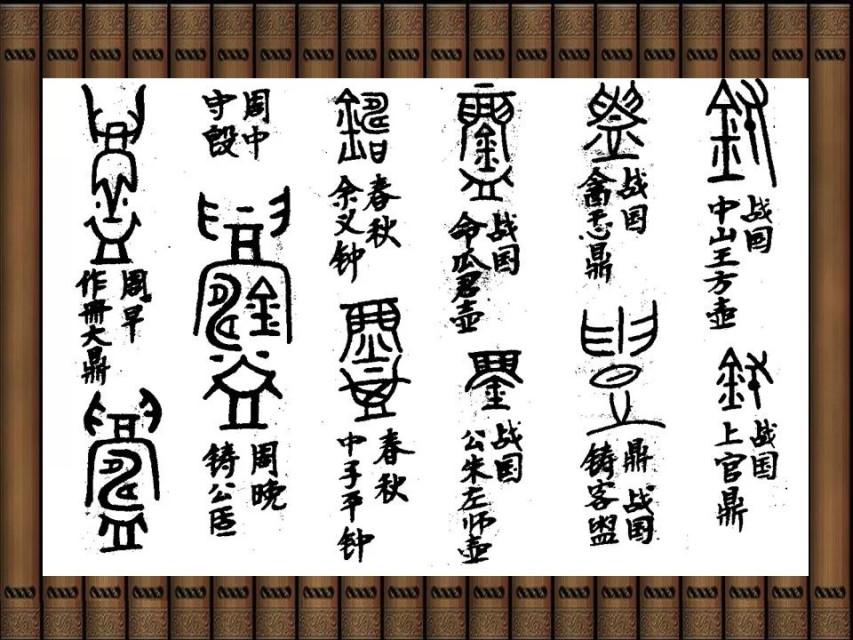 周早
作册大鼎
周中
守𣪘
周晚
铸公
春秋
余义钟
春秋
中子平钟
战国
命瓜君壶
战国
公朱左师壶
战国
忎鼎
战国
铸客盥
鼎
战国
中山王方壶
战国
上官鼎